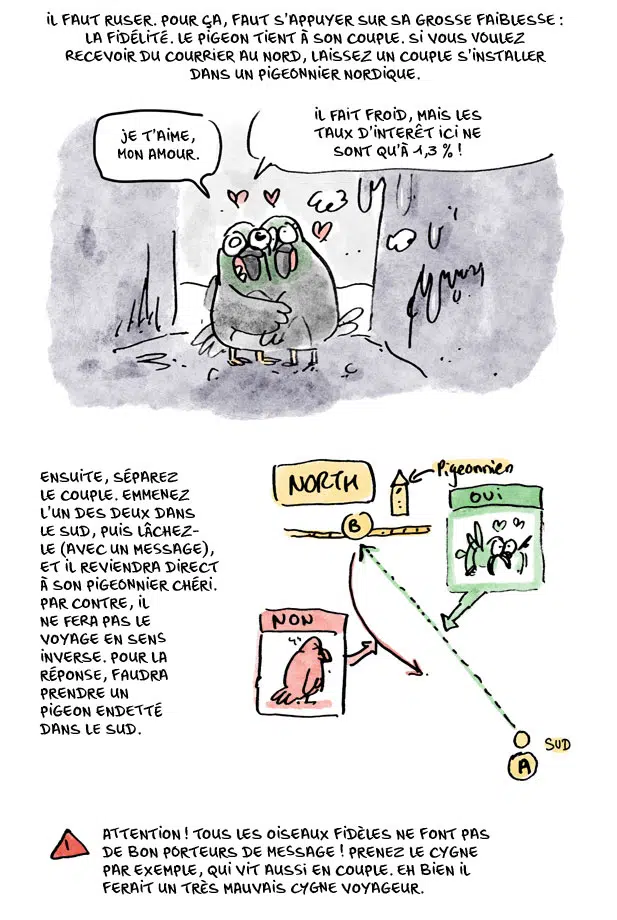 IL FAUT RUSER. POUR ÇA, FAUT S'APPUYER SUR SA GROSSE FAIBLESSE :
LA FIDÉLITÉ. LE PIGEON TIENT À SON COUPLE. SI VOUS VOULEZ
RECEVOIR DU COURRIER AU NORD, LAISSEZ UN COUPLE S'INSTALLER
DANS UN PIGEONNIER NORDIQUE.
JE T'AIME,
MON AMOUR.
IL FAIT FROID, MAIS LES
TAUX D'INTERÊT ICI NE
SONT QU'À 1,3 % !
ENSUITE, SÉPAREZ
LE COUPLE. EMMENEZ
L'UN DES DEUX DANS
LE SUD, PUIS LÂCHEZ-
LE (AVEC UN MESSAGE),
ET IL REVIENDRA DIRECT
À SON PIGEONNIER CHÉRI.
PAR CONTRE, IL
NE FERA PAS LE
VOYAGE EN SENS
INVERSE. POUR LA
RÉPONSE, FAUDRA
PRENDRE UN
PIGEON ENDETTÉ
DANS LE SUD.
NORTH
Pigeonnier
B
OUI
NON
SUD
A
!
ATTENTION ! TOUS LES OISEAUX FIDÈLES NE FONT PAS
DE BON PORTEURS DE MESSAGE ! PRENEZ LE CYGNE
PAR EXEMPLE, QUI VIT AUSSI EN COUPLE. EH BIEN IL
FERAIT UN TRÈS MAUVAIS CYGNE VOYAGEUR.